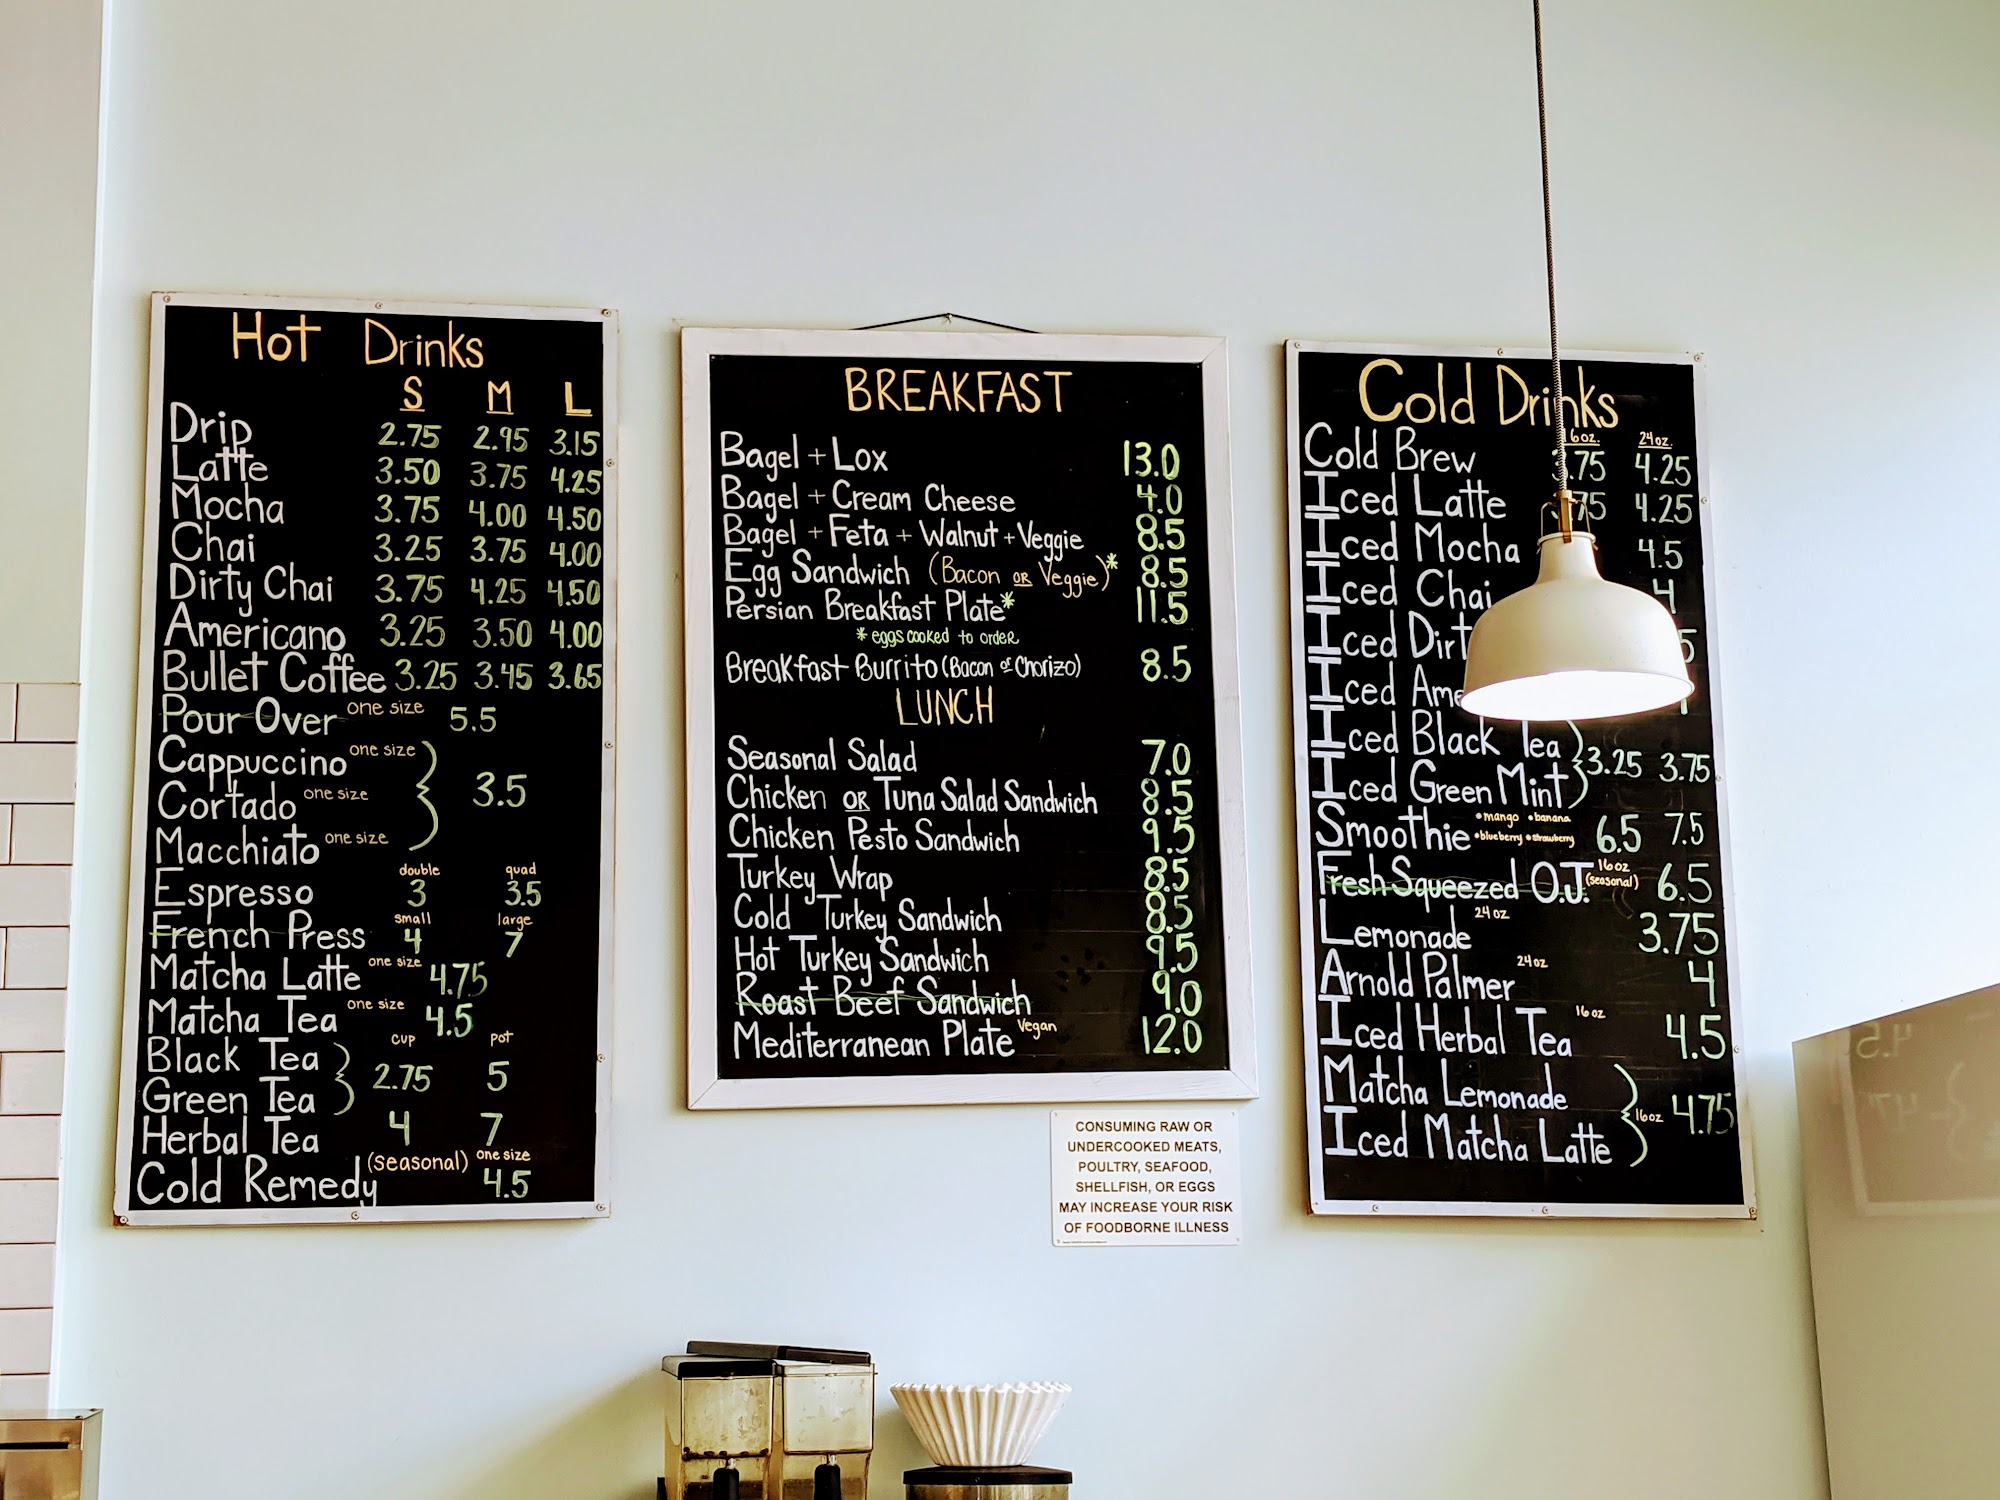 Hot Drinks
S M L
Drip 2.75 2.95 3.15
Latte 3.50 3.75 4.25
Mocha 3.75 4.00 4.50
Chai 3.25 3.75 4.00
Dirty Chai 3.75 4.25 4.50
Americano 3.25 3.50 4.00
Bullet Coffee 3.25 3.45 3.65
Pour Over one size 5.5
Cappuccino one size
Cortado one size 3.5
Macchiato one size
double quad
Espresso 3 3.5
small large
French Press 4 7
Matcha Latte one size 4.75
Matcha Tea one size 4.5
cup pot
Black Tea
2.75 5
Green Tea
Herbal Tea 4 7
(seasonal) one size
Cold Remedy 4.5
BREAKFAST
Bagel + Lox 13.0
Bagel + Cream Cheese 4.0
Bagel + Feta + Walnut + Veggie 8.5
Egg Sandwich (Bacon OR Veggie)* 8.5
Persian Breakfast Plate* 11.5
* eggs cooked to order
Breakfast Burrito (Bacon or Chorizo) 8.5
LUNCH
Seasonal Salad 7.0
Chicken OR Tuna Salad Sandwich 8.5
Chicken Pesto Sandwich 9.5
Turkey Wrap 8.5
Cold Turkey Sandwich 8.5
Hot Turkey Sandwich 9.5
Roast Beef Sandwich 9.0
Mediterranean Plate Vegan 12.0
CONSUMING RAW OR
UNDERCOOKED MEATS,
POULTRY, SEAFOOD,
SHELLFISH, OR EGGS
MAY INCREASE YOUR RISK
OF FOODBORNE ILLNESS
Cold Drinks
16oz. 24oz.
Cold Brew 3.75 4.25
Iced Latte 3.75 4.25
Iced Mocha 4.5
Iced Chai 4
Iced
Iced
Iced Black Tea
3.25 3.75
Iced Green Mint
Smoothie • mango • banana • blueberry • strawberry 6.5 7.5
Fresh Squeezed O.J. 16oz (seasonal) 6.5
Lemonade 24oz 3.75
Arnold Palmer 24oz 4
Iced Herbal Tea 16oz 4.5
Matcha Lemonade
16oz 4.75
Iced Matcha Latte